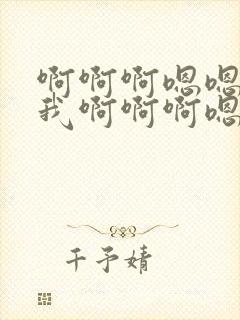 啊啊啊嗯嗯
我啊啊啊嗯
干予婧